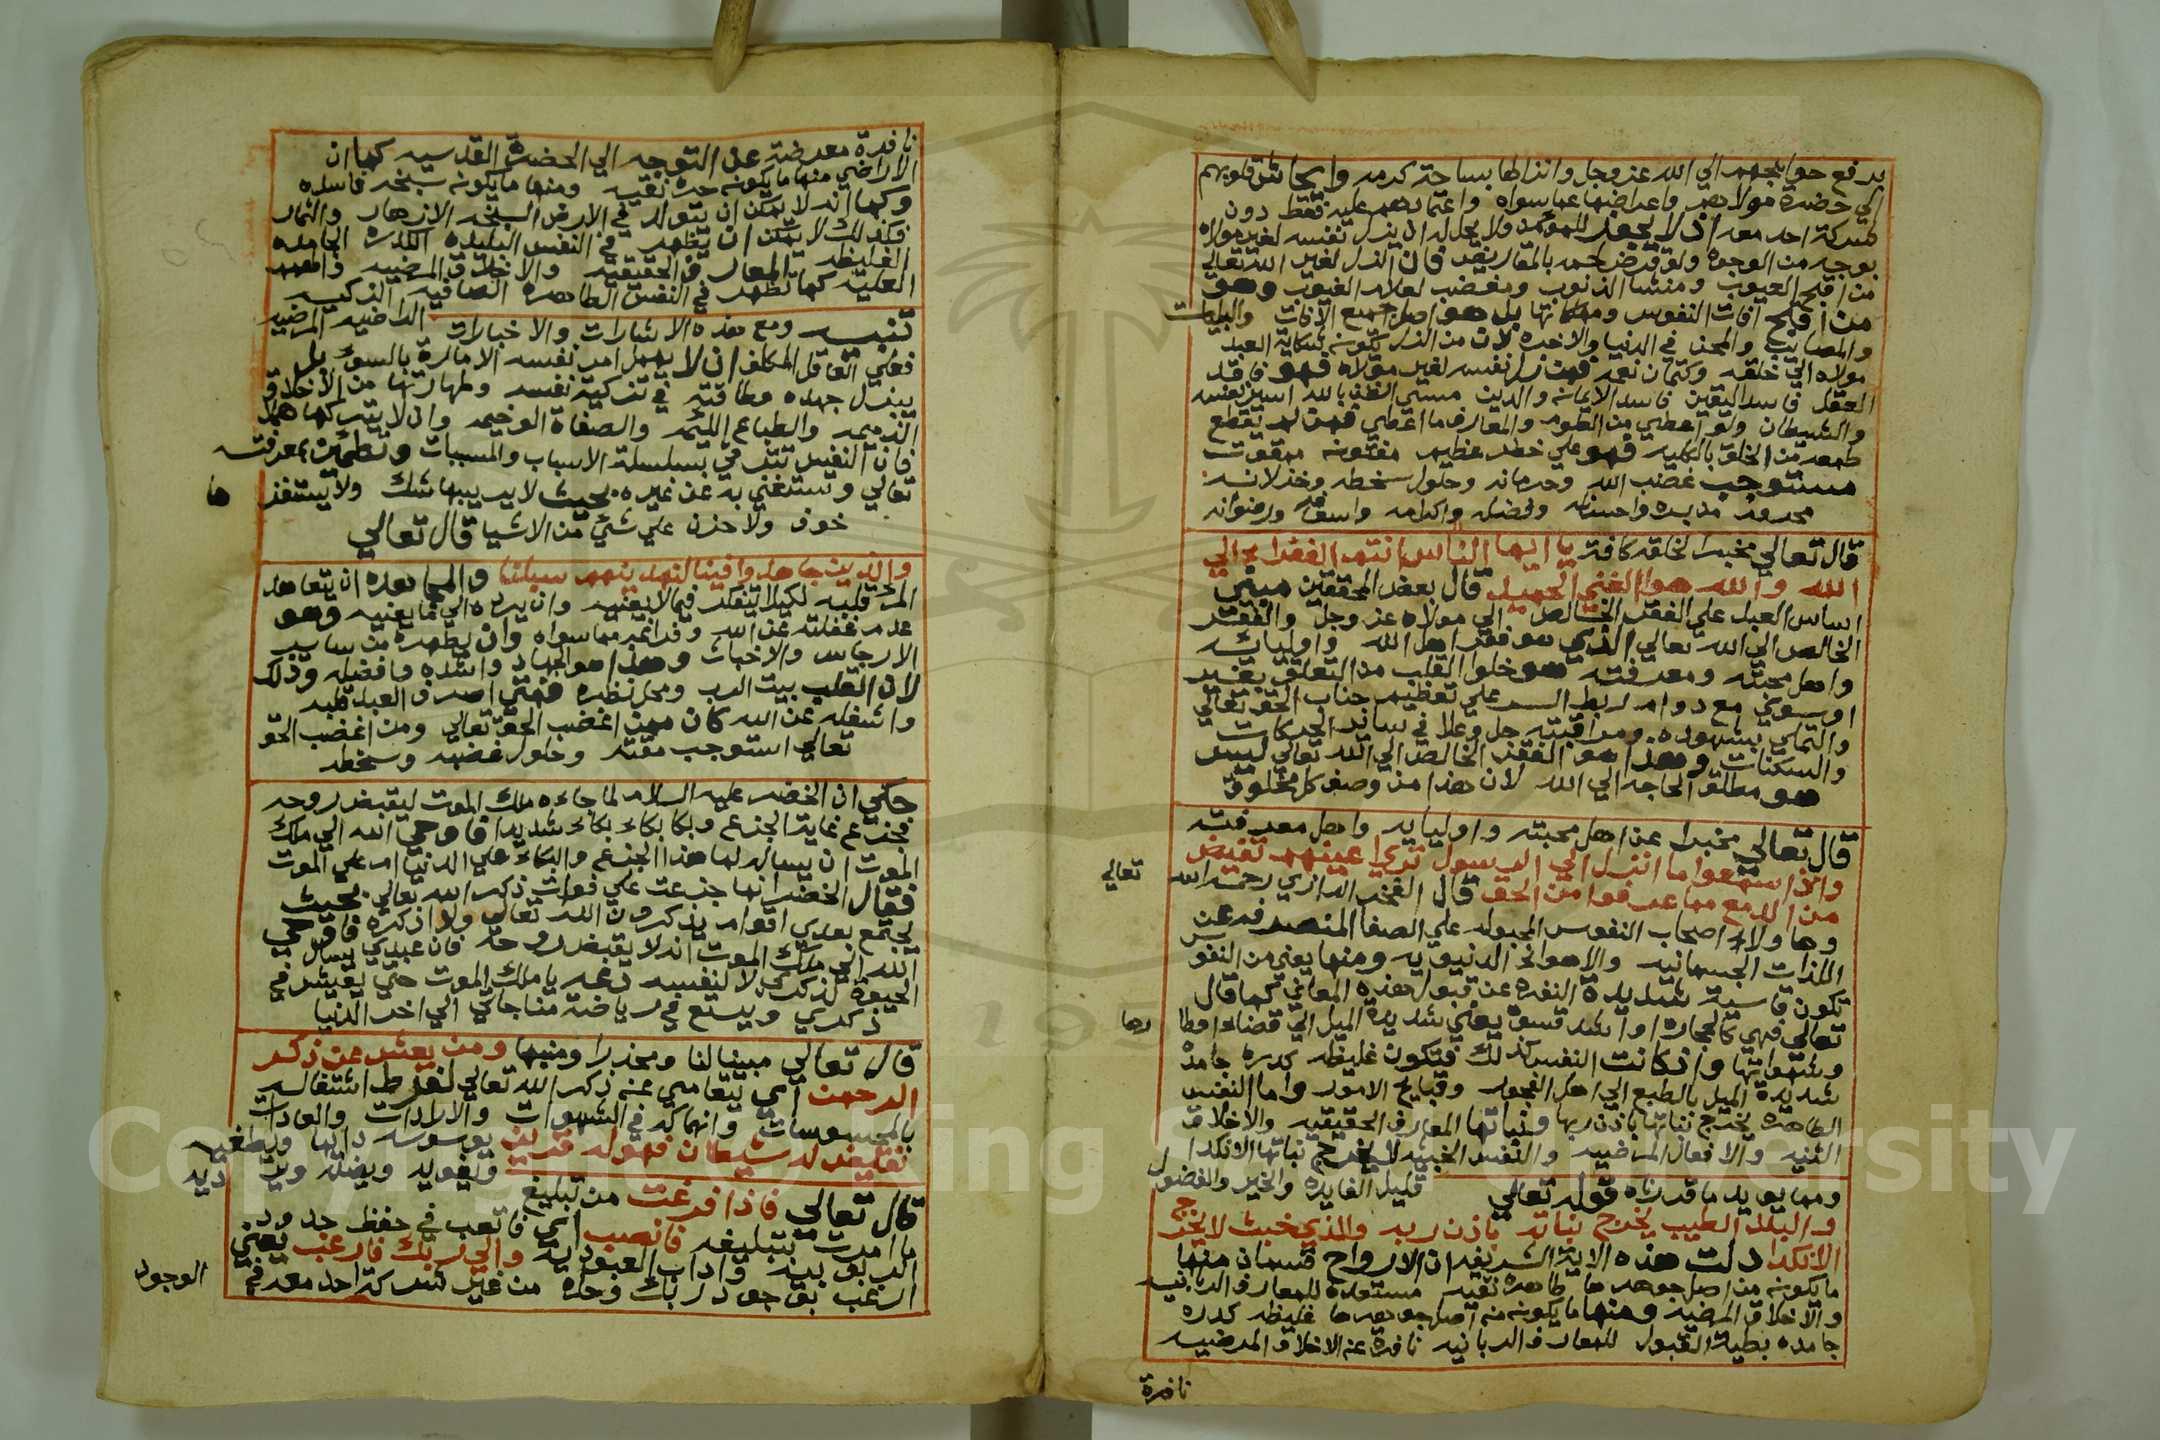 يدفع حوايجهم الي الله عز وجل وانزالها بساحة كرمه وايحاش قلوبهم
الي حضرة مولاهم واعراضها عما سواه واعتمادهم عليه فقط دون
شركة احد معه اذ لا يجوز للمؤمن ولا يحل له ان يذل نفسه لغير مولاه
بوجه من الوجوه ولو قرض لحمه بالمقاريض فان الذل لغير الله تعالي
من اقبح العيوب ومنشا الذنوب ومغضب لعلام الغيوب وهو
من اقبح افات النفوس ومهلكاتها بل هو اصل جميع الافات والبليات
والمصايب والمحن في الدنيا والاخره لان من الذل تكونه شكاية العبد
مولاه الي خلقه وكتمان نعمه فمن ذل نفسه لغير مولاه فهو فاقد
العقل فاسد اليقين فاسد الايمانه والدين مسئ الظن بالله اسير نفسه
والشيطان ولو اعطي من العلوم والمعارف ما اعطي فمن لم يقطع
طمعه من الخلق بالكليه فهو علي خطر عظيم مفتونه ممقوت
مستوجب غضب الله وحرمانه وحلول سخطه وخذلانه
محروم مديده واحسانه وفضله واكرامه واسعافه ورضوانه
قال تعالي مخبرا لخلقه كافة يا ايها الناس انتم الفقراء الي
الله والله هو الغني الحميد قال بعض المحققين مبني
اساس العبد علي الفقر الخالص الي مولاه عز وجل والفقر
الخالص الي الله تعالي الذي هو فقر اهل الله واوليائه
واهل محبته ومعرفته هو خلوا القلب من التعلق بغير
اوسوي مع دوام ربط السر علي تعظيم جناب الحق تعالي
والتملي بشهوده ومراقبته جل وعلا في ساير الحركات
والسكنات وهذا هو الفقر الخالص الي الله تعالي ليس
هو مطلق الحاجه الي الله لان هذا من وصف كل مخلوق
قال تعالي مخبرا عن اهل محبته واوليايه واهل معرفته
واذا سمعوا ما انزل الي الرسول تري اعينهم تفيض
من الدمع مما عرفوا من الحق قال الفخر الرازي رحمه الله
تعالي
وهاولاء اصحاب النفوس المجبوله علي الصفا المنصرفه عن
اللذات الجسمانيه والاهواء الدنيويه ومنها يعني من النفوس
تكون قاسية شديدة النفره عن قبول هذه المعاني كما قال
تعالي فهي كالحجاره او اشد قسوة يعني شديدة الميل الي قضاء اوطا
رها
وشهواتها واذ كانت النفس كذلك فتكون غليظه كدره جامدة
شديدة الميل بالطبع الي اهل الفجور وقبايح الامور واما النفس
الطاهره يخرج نباتها باذن ربها ونباتها المعارف الحقيقيه والاخلاق
السنيه والافعال المرضيه والنفس الخبيثه لا يخرج نباتها الا نكدا
قليل الفايده والخير والفضول
ومما يويد ما قدرناه قوله تعالي
والبلد الطيب يخرج نباته باذن ربه والذي خبث لا يخرج
الا نكدا دلت هذه الايه الشريفه ان الارواح قسمان منها
ما يكونه من اصل جوهرها طاهره نقيه مستعده للمعارف الربانيه
والاخلاق المرضيه ومنها ما يكونه من اصل جوهرها غليظه كدره
جامده بطية القبول للمعارف الربانيه نافرة عن الاخلاق المرضيه
نافرة
نافرة معرضة عن التوجه الي الحضرة القدسيه كما ان
الاراضي منها ما يكونه حره نقيه ومنها ما يكونه سبخه فاسده
وكما انه لا يمكن ان يتولد في الارض السبخه الازهار والثمار
فكذلك لا يمكن ان يظهر في النفس البليده الكدره الجامده
الغليظه المعارف الحقيقيه والاخلاق المرضيه والهمم
العليه كما تظهر في النفس الطاهره الصافيه الزكيه
الراضيه المرضيه
تنبيه ومع هذه الاشارات والاخبارات
فعلي العاقل المكلف ان لا يهمل امر نفسه الامارة بالسوء بل
يبذل جهده وطاقته في تزكية نفسه وطهارتها من الاخلاق
الذميمه والطباع اللئيمه والصفاة الوخيمه وان لا يتركها هملا
فان النفس تترقي بسلسلة الاسباب والمسببات وتطمئن بمعرفته
تعالي وتستغني به عن غيره بحيث لا يريبها شك ولا يستفز
ها
خوف ولا حزن علي شئ من الاشيا قال تعالي
والذين جاهدوا فينا لنهدينهم سبلنا والمجاهده ان يتعاهد
المرء قلبه لكيلا يتفكر فيما لا يعنيه وان يرده الي ما يعنيه وهو
عدم غفلته عن الله وفراغه مما سواه وان يطهره من ساير
الارجاس والاخباث وهذا هو الجهاد واشده وافضله وذلك
لان القلب بيت الرب ومحل نظره فمتي اصرف العبد قلبه
واشغله عن الله كان ممن اغضب الحق تعالي ومن اغضب الحق
تعالي استوجب مقته وحلول غضبه وسخطه
حكي ان الخضر عليه السلام لما جاءه ملك الموت ليقبض روحه
فجزع غاية الجزع وبكا بكاء بكاء شديدا فاوحي الله الي ملك
الموت ان يساله لما هذا الجزع والبكاء علي الدنيا ام علي الموت
فقال الخضر انما جزعت علي فوات ذكر الله تعالي بحيث
يجتمع بعدي اقوام يذكرون الله تعالي ولا اذكره فاوحي
الله الي ملك الموت انه لا يقبض روحه فان عبدي يسال
الحيوة لذكري لا لنفسه دعه يا ملك الموت حتي يعيش في
ذكري ويسع في رياضة مناجاتي الي اخر الدنيا
قال تعالي مبينا لنا ومحذرا ومنبها ومن يعش عن ذكر
الرحمن اي يتعامي عنه ذكر الله تعالي لفرط اشتغاله
بالمحسوسات وانهماكه في الشهوات والارادات والعادات
نقيض له شيطانا فهو له قرين يوسوسه دايما ويطغيه
ويغويه ويضله
قال تعالي فاذا فرغت من تبليغ
ما امرت بتبليغه فانصب اي فاتعب في حفظ حدود
الربوبيه واداب العبوديه والي ربك فارغب يعني
ارغب بوجود ربك وحده من غير شركة احد معه في
الوجود